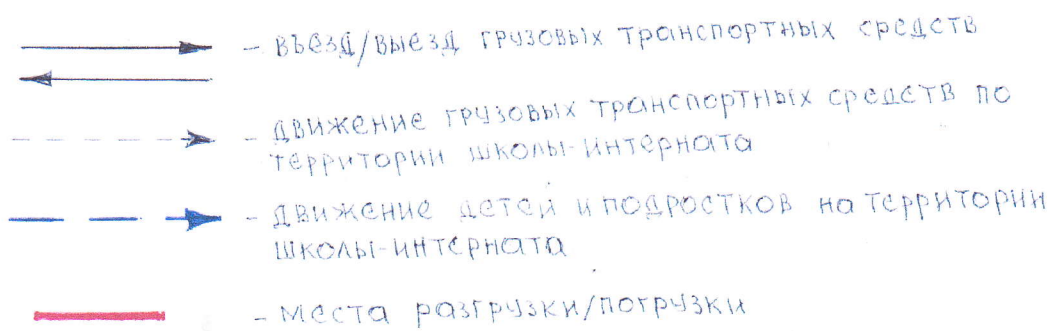 - въезд/выезд грузовых транспортных средств
- движение грузовых транспортных средств по
территории школы-интерната
- движение детей и подростков на территории
школы-интерната
- места разгрузки/погрузки